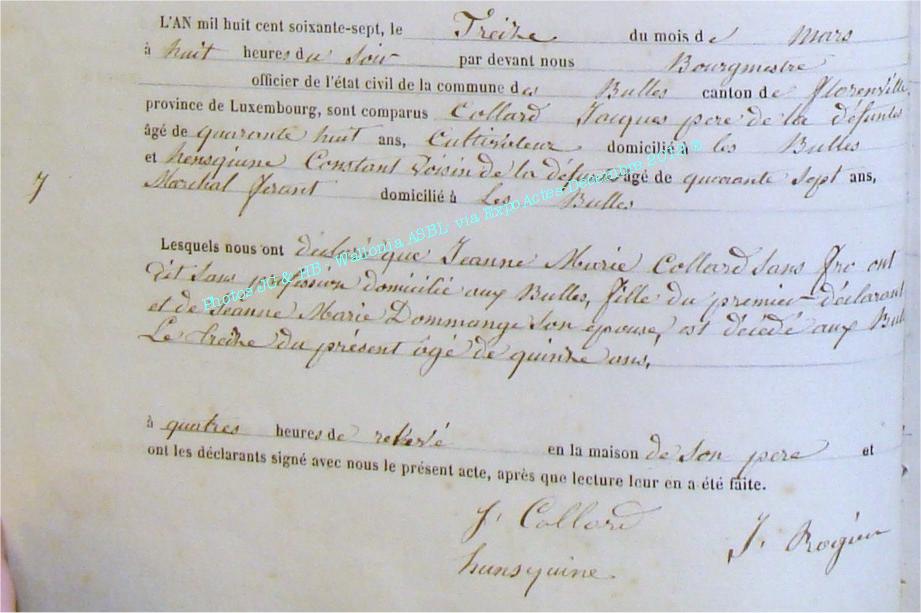 L'AN mil huit cent soixante-sept, le Treize du mois de mars
à huit heures du Soir par devant nous Bourgmestre
officier de l'état civil de la commune des Bulles canton de Florenville
province de Luxembourg, sont comparus Collard Jacques pere de la défunte
âgé de quarante huit ans, Cultivateur domicilié à les Bulles
et hensquine Constant Voisin de la défunte âgé de quarante sept ans,
7 Maréchal ferant domicilié à Les Bulles
Lesquels nous ont déclaré que Jeanne Marie Collard sans ont
dit sans profession domicilié aux Bulles, fille du premier déclarant
et de Jeanne Marie Dommange son épouse, est décédé aux Bul
Le treize du présent âgé de quinze ans,
à quatres heures de relevé en la maison de son pere et
ont les déclarants signé avec nous le présent acte, après que lecture leur en a été faite.
J. Collard
hensquine
J. Rogier
Photos JC & HB - Wallonia ASBL via ExpoActes Décembre